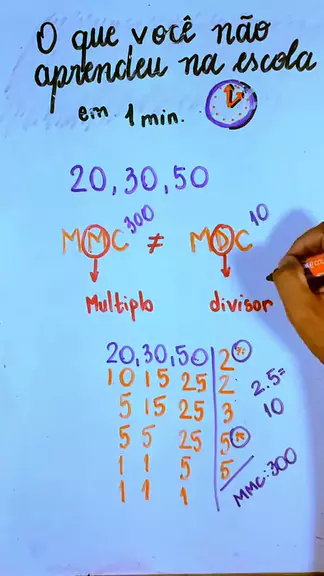 O que você não
aprendeu na escola
em 1 min.
20, 30, 50
MMC 300 ≠ MDC 10
Multiplo divisor
20, 30, 50 2 *
10 15 25 2
5 15 25 3
5 5 25 5 *
1 1 5 5
1 1 1
2.5=
10
MMC:300